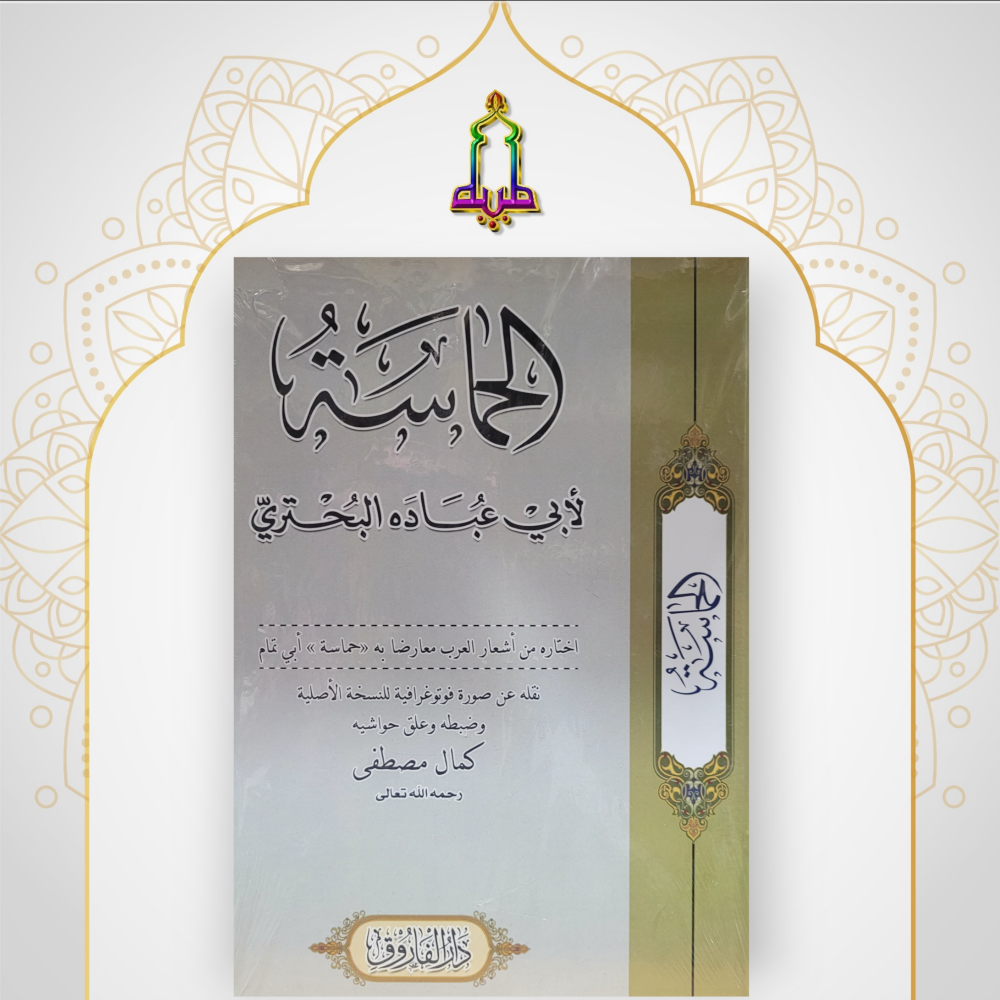 طيبة
الحماسةُ
لأبي عُبَادَه البُحْتريّ
اختاره من أشعار العرب معارضا به «حماسة» أبي تمام
نقله عن صورة فوتوغرافية للنسخة الأصلية
وضبطه وعلق حواشيه
كمال مصطفى
رحمه الله تعالى
دَارُ الفَارُوقِ
الحماسةُ